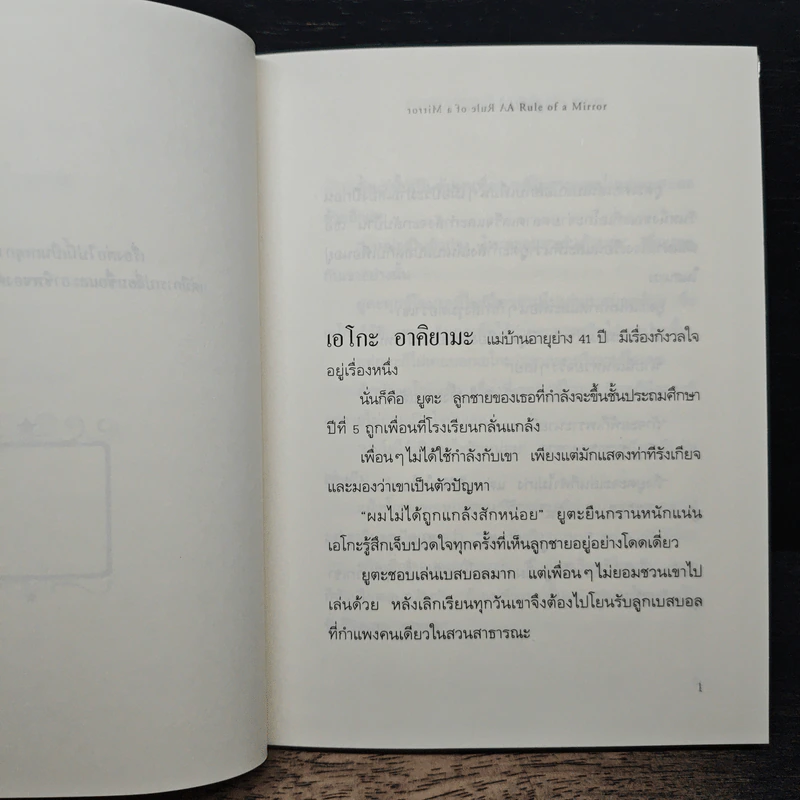 A Rule of a Mirror
เอโกะ อาคิยามะ แม่บ้านอายุย่าง 41 ปี มีเรื่องกังวลใจ
อยู่เรื่องหนึ่ง
นั่นก็คือ ยูตะ ลูกชายของเธอที่กำลังจะขึ้นชั้นประถมศึกษา
ปีที่ 5 ถูกเพื่อนที่โรงเรียนกลั่นแกล้ง
เพื่อนๆไม่ได้ใช้กำลังกับเขา เพียงแต่มักแสดงท่าทีรังเกียจ
และมองว่าเขาเป็นตัวปัญหา
“ผมไม่ได้ถูกแกล้งสักหน่อย” ยูตะยืนกรานหนักแน่น
เอโกะรู้สึกเจ็บปวดใจทุกครั้งที่เห็นลูกชายอยู่อย่างโดดเดี่ยว
ยูตะชอบเล่นเบสบอลมาก แต่เพื่อนๆไม่ยอมชวนเขาไป
เล่นด้วย หลังเลิกเรียนทุกวันเขาจึงต้องไปโยนรับลูกเบสบอล
ที่กำแพงคนเดียวในสวนสาธารณะ
1